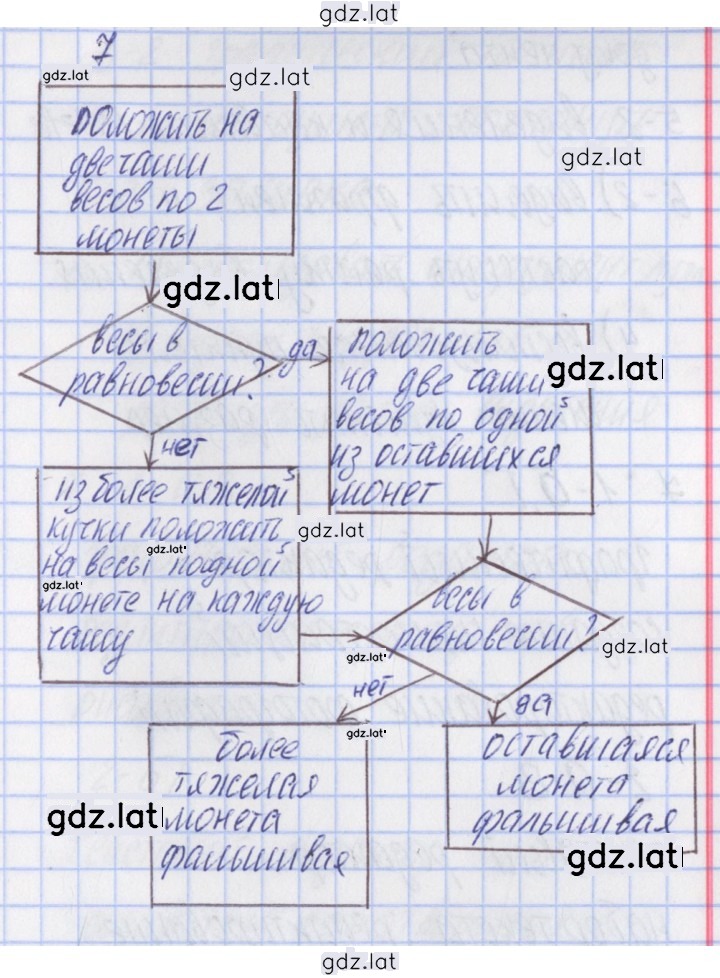 gdz.lat
7
gdz.lat
gdz.lat
положить на
две чаши
весов по 2
монеты
gdz.lat
gdz.lat
весы в
равновесии?
да
нет
положить
на две чаши
gdz.lat
весов по одной
из оставшихся
монет
из более тяжелой
кучки положить
gdz.lat
на весы по одной
gdz.lat
gdz.lat
монете на каждую
чашу
весы в
равновесии?
gdz.lat
gdz.lat
нет
да
gdz.lat
более
тяжелая
монета
gdz.lat
фальшивая
оставшаяся
монета
фальшивая
gdz.lat
gdz.lat